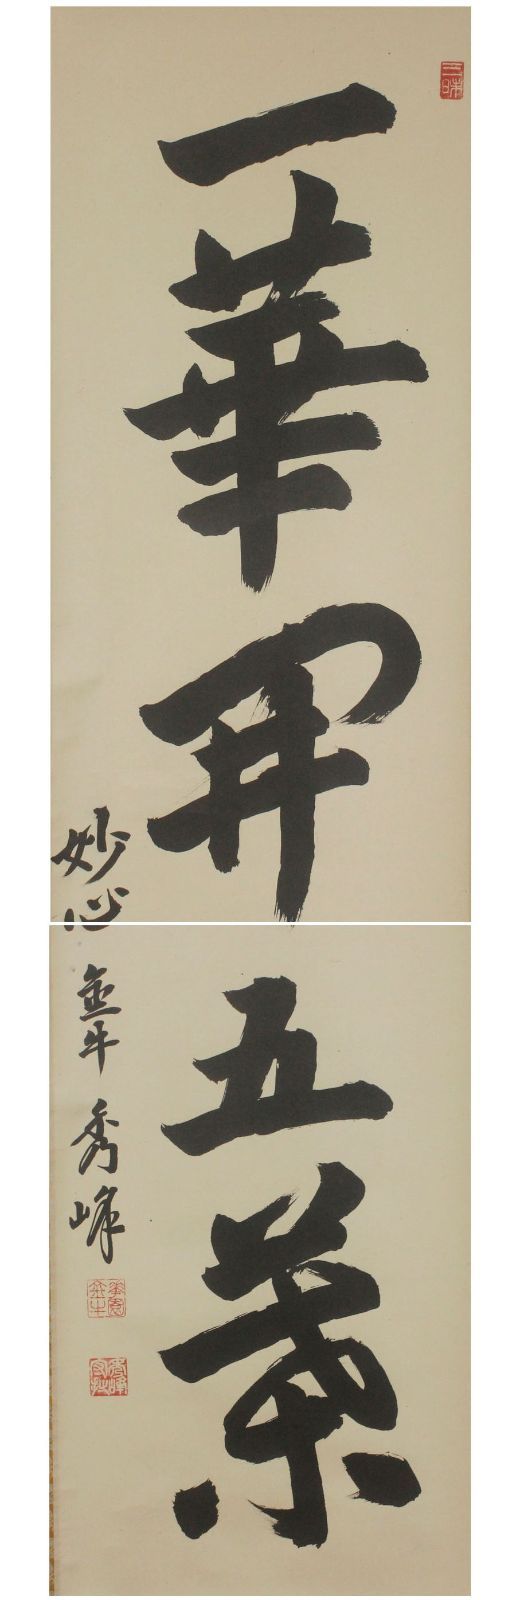 一華開五葉
妙心金牛秀峰